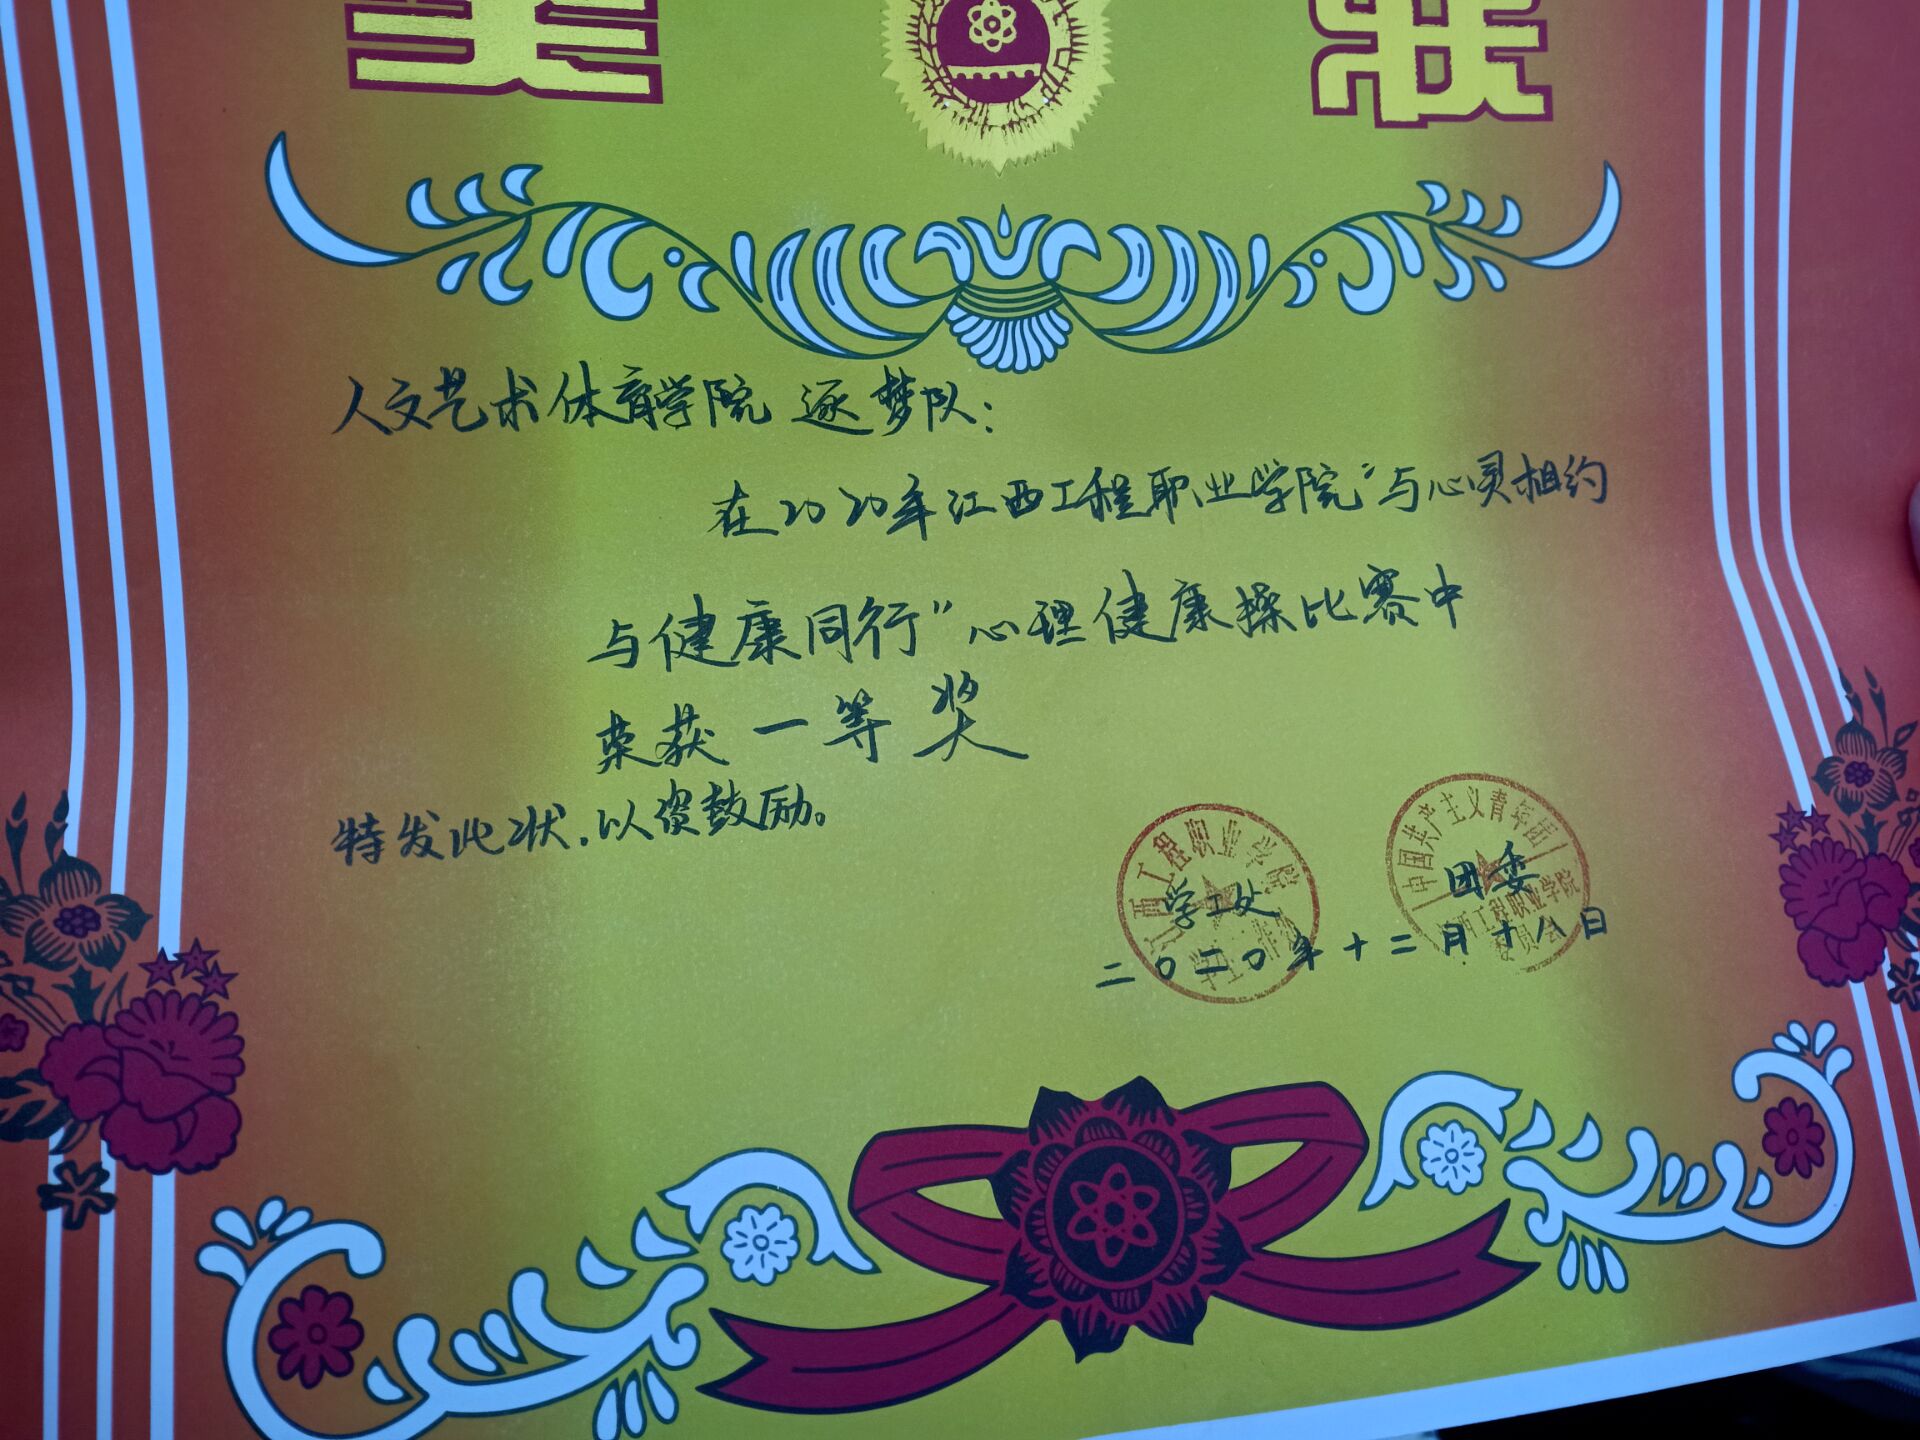 人文艺术体育学院 逐梦队：
在2020年江西工程职业学院“与心灵相约
与健康同行”心理健康操比赛中
荣获 一等奖
特发此状，以资鼓励。
江西工程职业学院
学工处
中国共产主义青年团
江西工程职业学院
委员会
团委
二〇二〇年十二月十八日